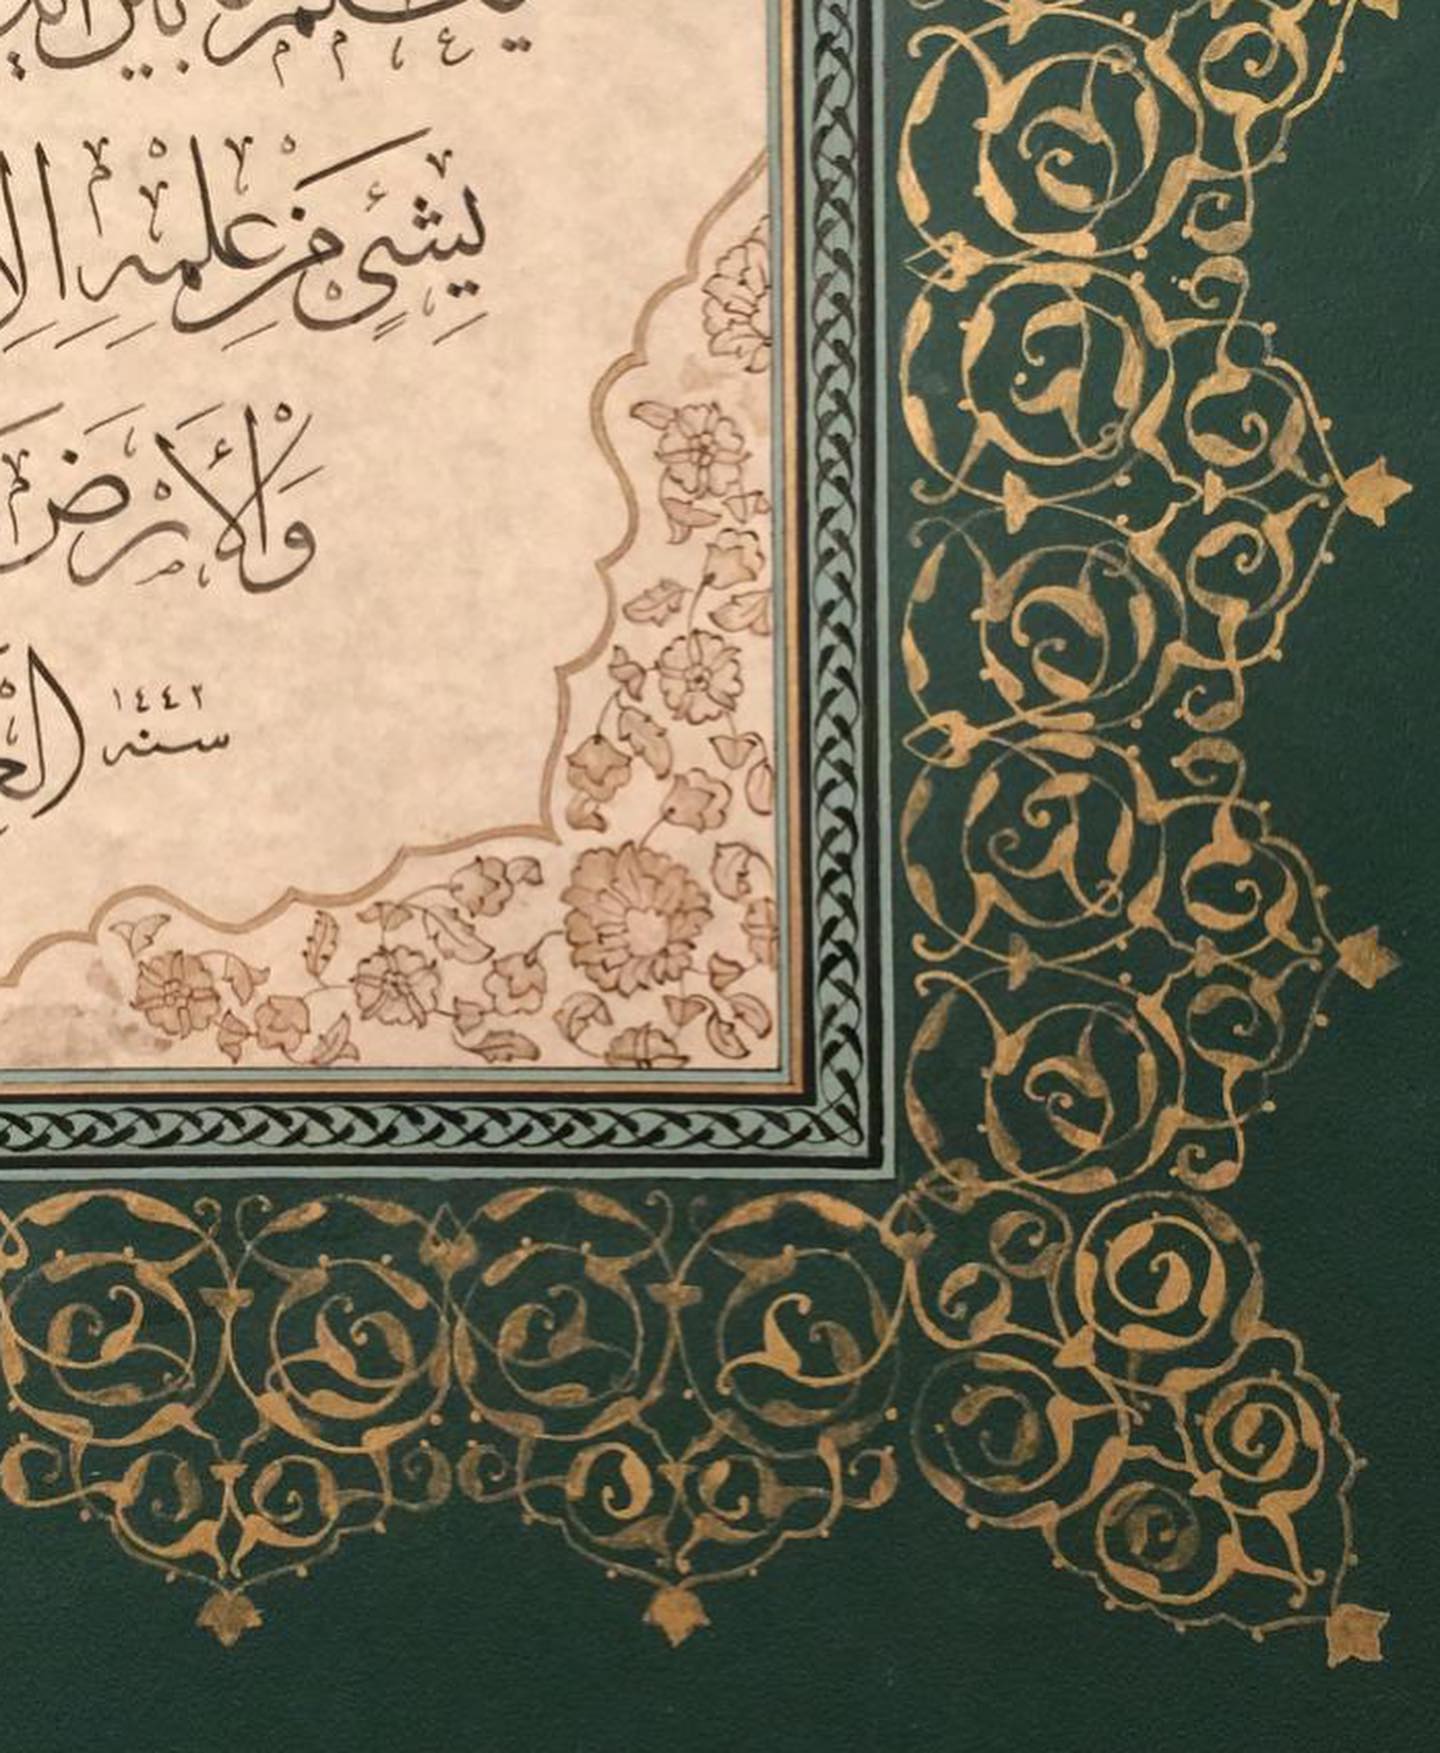 يعلم ما بين
بِشَيْءٍ مِنْ عِلْمِهِ إِلَّا
وَالْأَرْضَ
سنه ١٤٤٢